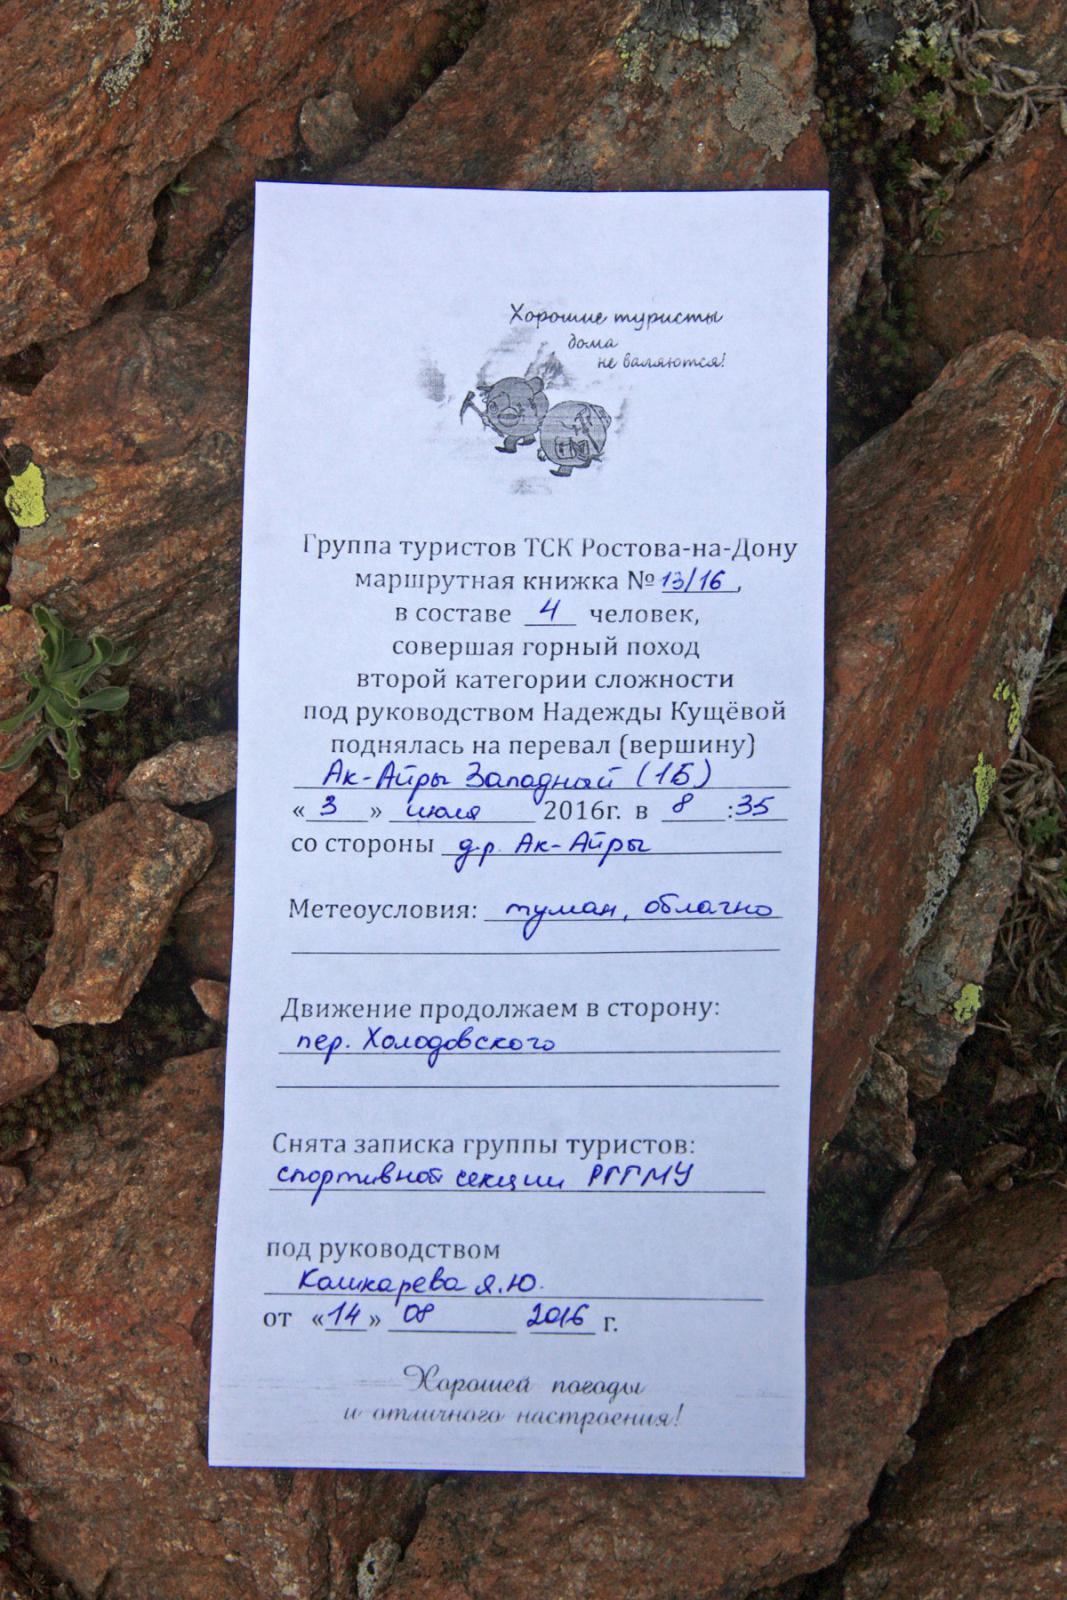 Хорошие туристы
дома
не валяются!
Группа туристов ТСК Ростова-на-Дону
маршрутная книжка № 13/16,
в составе 4 человек,
совершая горный поход
второй категории сложности
под руководством Надежды Кущёвой
поднялась на перевал (вершину)
Ак-Айры Западный (1Б)
« 3 » июля 2016г. в 8 :35
со стороны д.р. Ак-Айры
Метеоусловия: туман, облачно
Движение продолжаем в сторону:
пер. Холодовского
Снята записка группы туристов:
спортивной секции РГГМУ
под руководством
Кашкарева Я.Ю.
от «14» 08 2016 г.
Хорошей погоды
и отличного настроения!